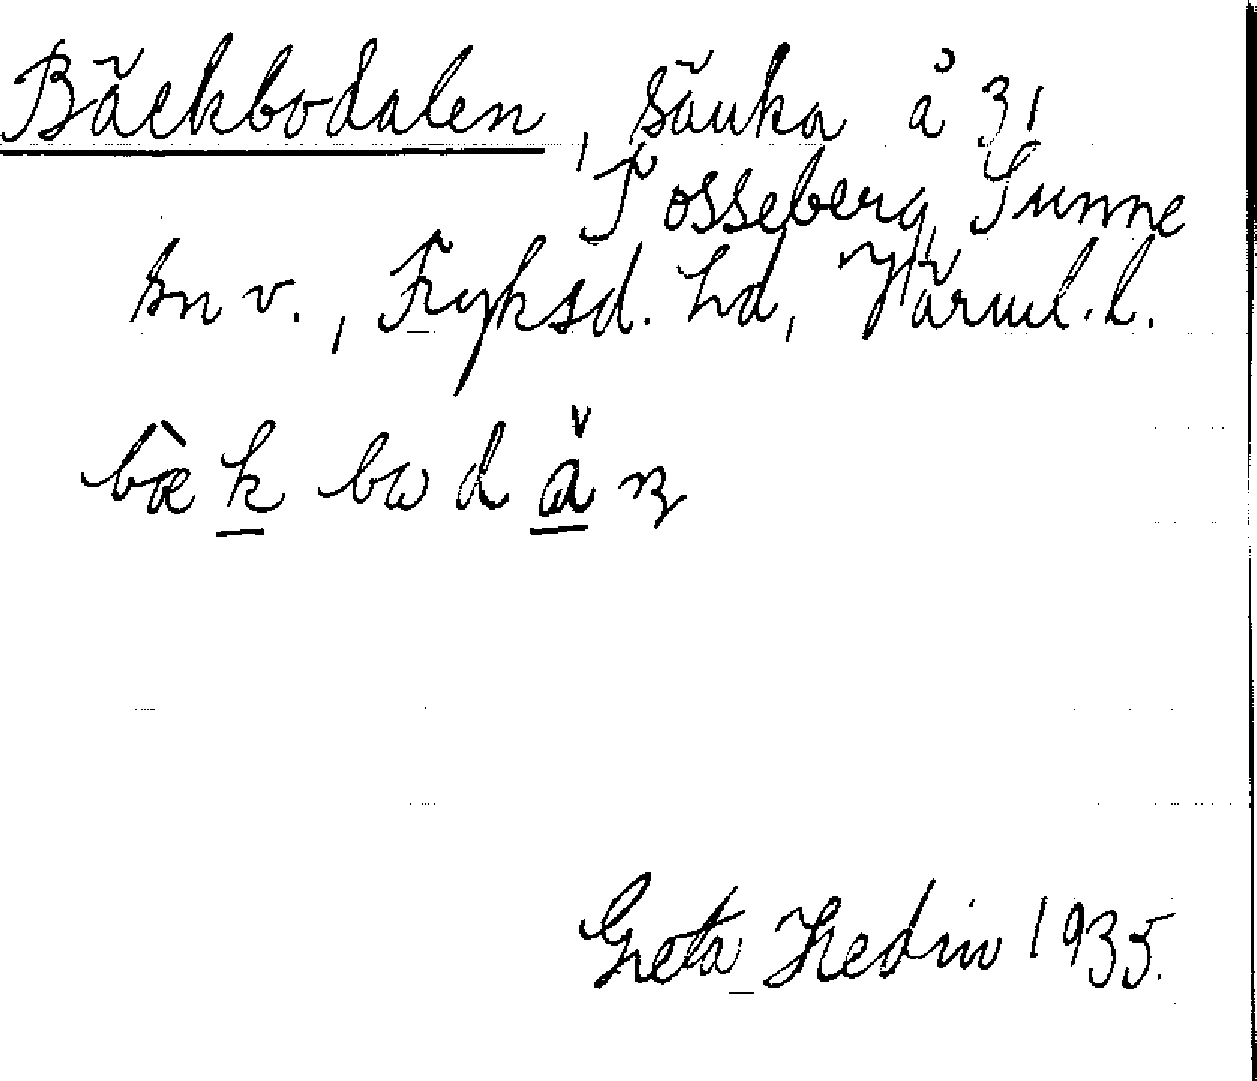 Bäckbodalen, sänka å 31
Tosseberg, Sunne
sn v., Fryksd. hd, Värml. l.
bæ̀k bω dǎn
Greta Hedin 1935.